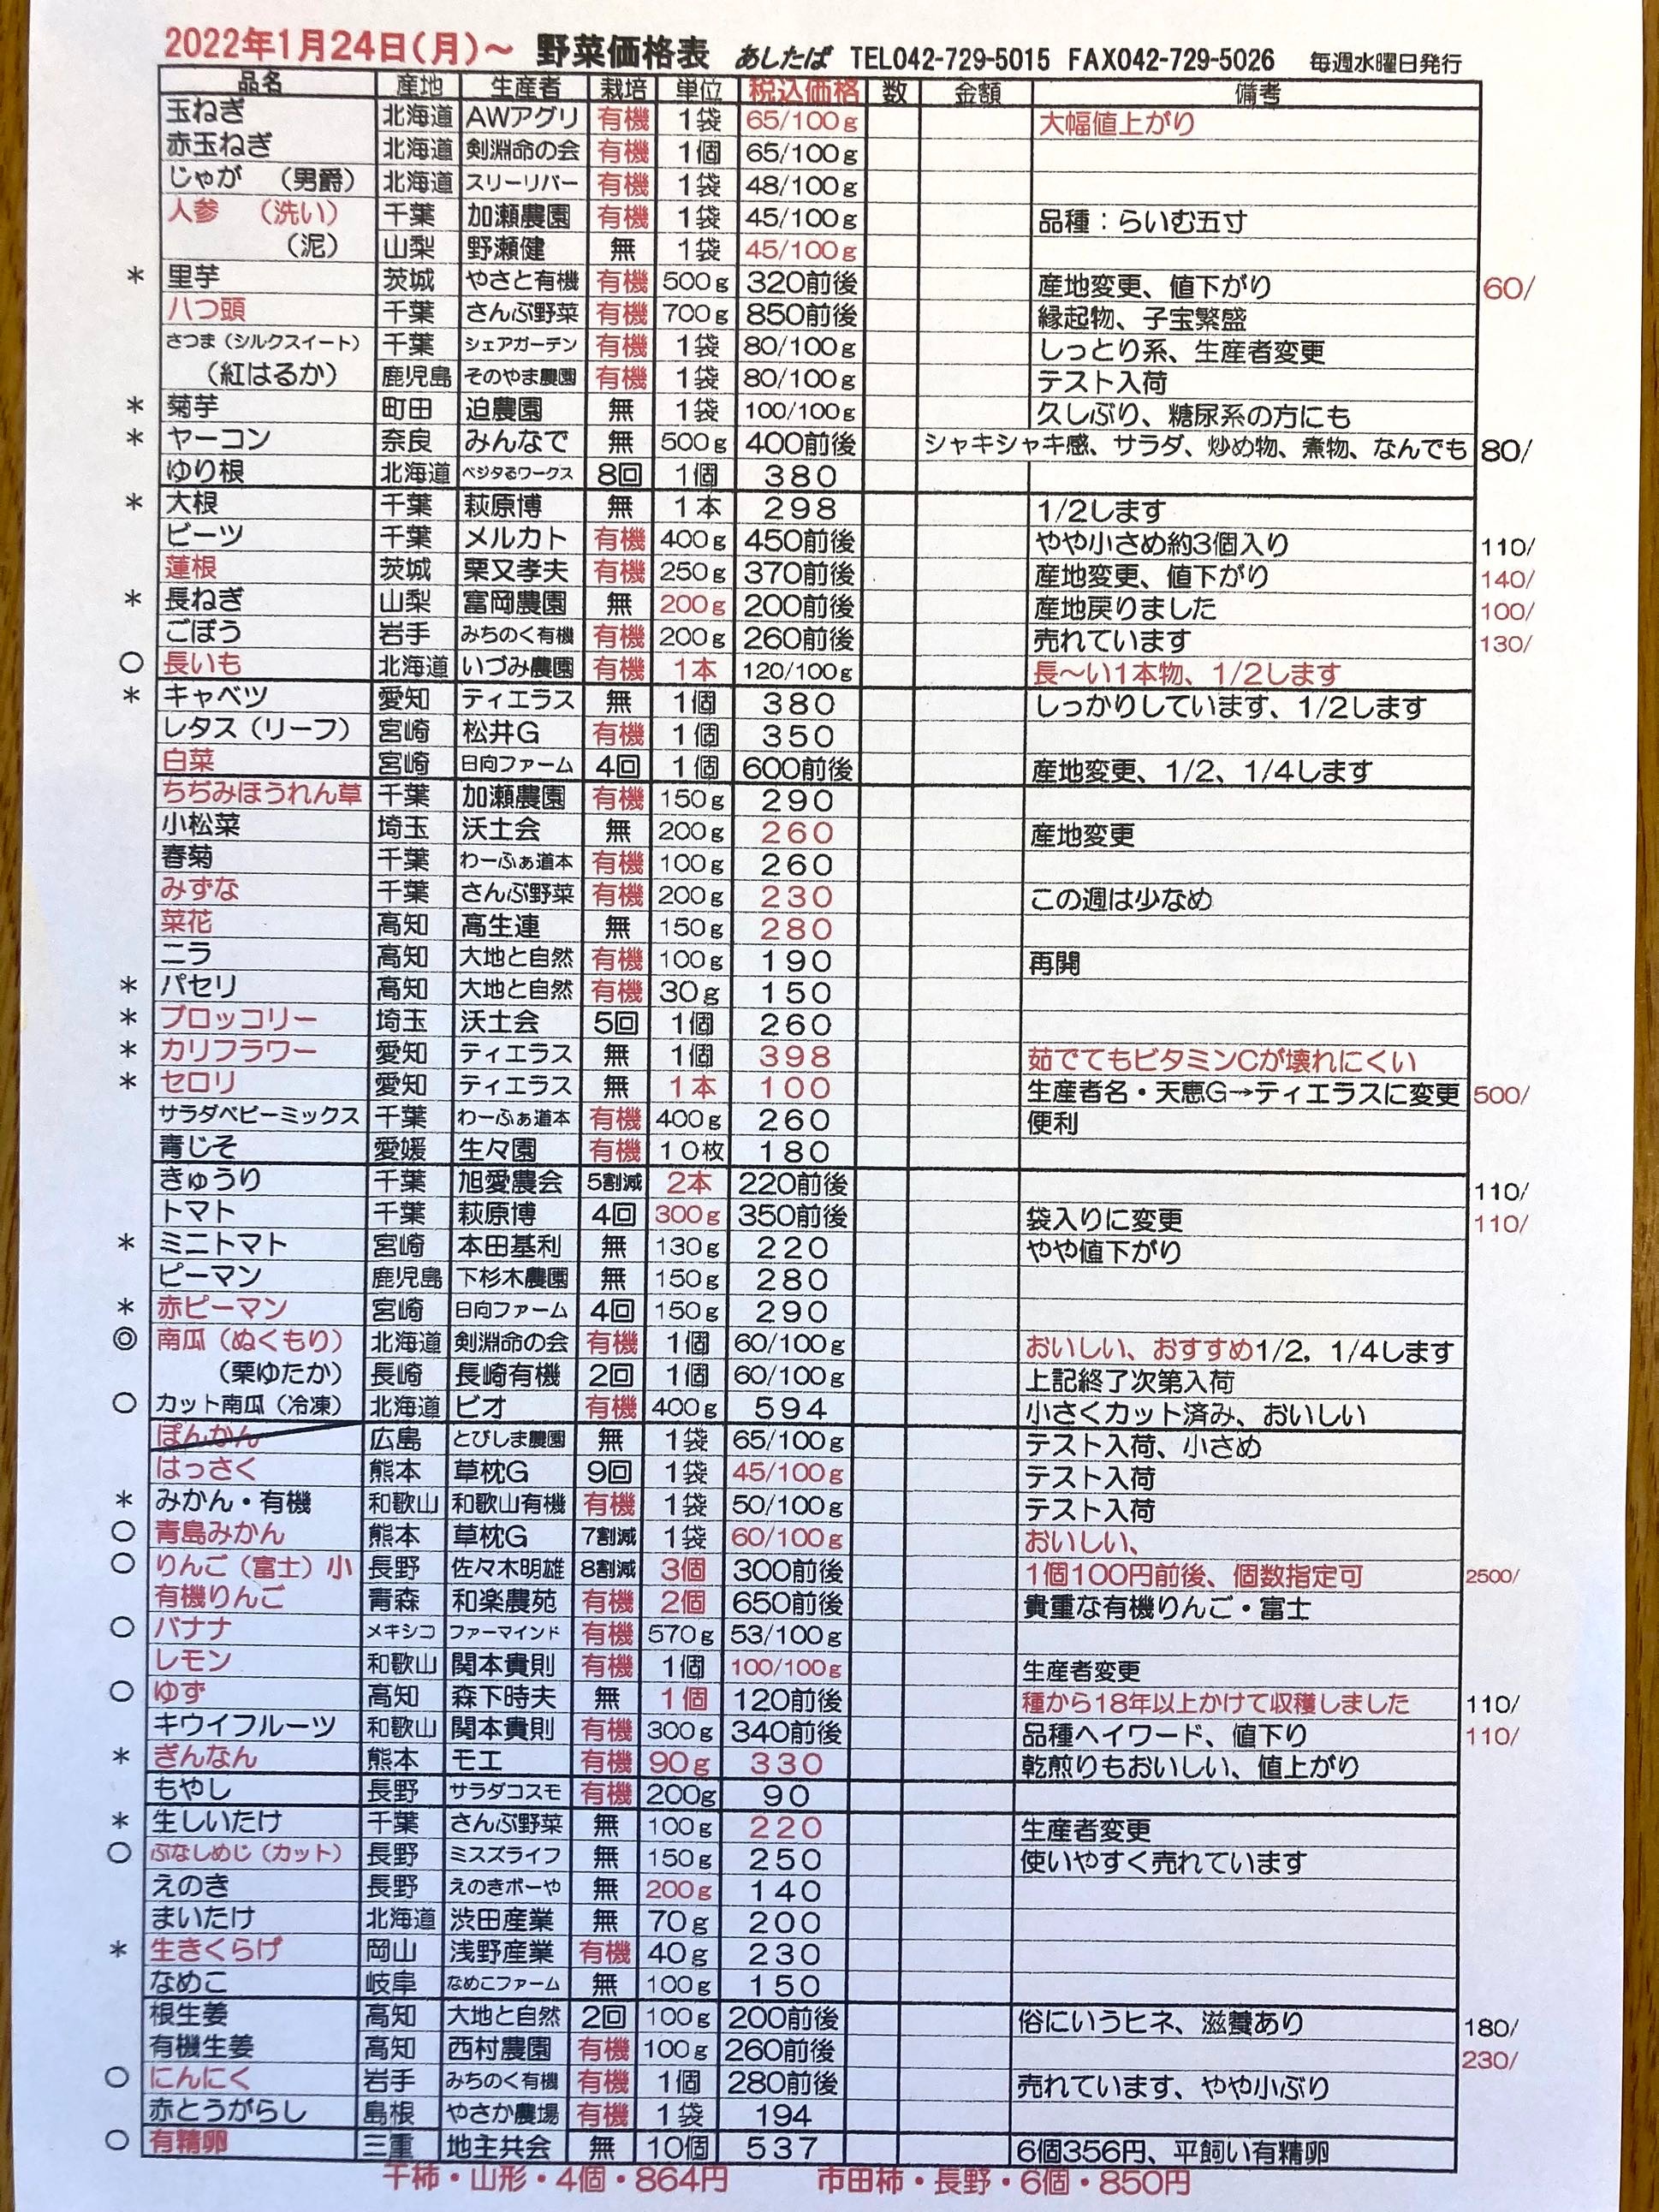 2022年1月24日(月)～ 野菜価格表 あしたば TEL042-729-5015 FAX042-729-5026 毎週水曜日発行
品名 産地 生産者 栽培 単位 税込価格 数 金額 備考
玉ねぎ 北海道 AWアグリ 有機 1袋 65/100g 大幅値上がり
赤玉ねぎ 北海道 剣淵命の会 有機 1個 65/100g
じゃが （男爵） 北海道 スリーリバー 有機 1袋 48/100g
人参 （洗い） 千葉 加瀬農園 有機 1袋 45/100g 品種：らいむ五寸
（泥） 山梨 野瀬健 無 1袋 45/100g
* 里芋 茨城 やさと有機 有機 500g 320前後 産地変更、値下がり 60/
八つ頭 千葉 さんぶ野菜 有機 700g 850前後 縁起物、子宝繁盛
さつま（シルクスイート） 千葉 シェアガーデン 有機 1袋 80/100g しっとり系、生産者変更
（紅はるか） 鹿児島 そのやま農園 有機 1袋 80/100g テスト入荷
* 菊芋 町田 迫農園 無 1袋 100/100g 久しぶり、糖尿系の方にも
* ヤーコン 奈良 みんなで 無 500g 400前後 シャキシャキ感、サラダ、炒め物、煮物、なんでも 80/
ゆり根 北海道 ベジタるワークス 8回 1個 380
* 大根 千葉 萩原博 無 1本 298 1/2します
ビーツ 千葉 メルカト 有機 400g 450前後 やや小さめ約3個入り 110/
蓮根 茨城 栗又孝夫 有機 250g 370前後 産地変更、値下がり 140/
* 長ねぎ 山梨 富岡農園 無 200g 200前後 産地戻りました 100/
ごぼう 岩手 みちのく有機 有機 200g 260前後 売れています 130/
○ 長いも 北海道 いづみ農園 有機 1本 120/100g 長～い1本物、1/2します
* キャベツ 愛知 ティエラス 無 1個 380 しっかりしています、1/2します
レタス（リーフ） 宮崎 松井G 有機 1個 350
白菜 宮崎 日向ファーム 4回 1個 600前後 産地変更、1/2、1/4します
ちぢみほうれん草 千葉 加瀬農園 有機 150g 290
小松菜 埼玉 沃土会 無 200g 260 産地変更
春菊 千葉 わーふぁ道本 有機 100g 260
みずな 千葉 さんぶ野菜 有機 200g 230 この週は少なめ
菜花 高知 高生連 無 150g 280
ニラ 高知 大地と自然 有機 100g 190 再開
* パセリ 高知 大地と自然 有機 30g 150
* ブロッコリー 埼玉 沃土会 5回 1個 260
* カリフラワー 愛知 ティエラス 無 1個 398 茹でてもビタミンCが壊れにくい
* セロリ 愛知 ティエラス 無 1本 100 生産者名・天恵G→ティエラスに変更 500/
サラダベビーミックス 千葉 わーふぁ道本 有機 400g 260 便利
青じそ 愛媛 生々園 有機 10枚 180
きゅうり 千葉 旭愛農会 5割減 2本 220前後 110/
トマト 千葉 萩原博 4回 300g 350前後 袋入りに変更 110/
* ミニトマト 宮崎 本田基利 無 130g 220 やや値下がり
ピーマン 鹿児島 下杉木農園 無 150g 280
* 赤ピーマン 宮崎 日向ファーム 4回 150g 290
◎ 南瓜（ぬくもり） 北海道 剣淵命の会 有機 1個 60/100g おいしい、おすすめ1/2，1/4します
（栗ゆたか） 長崎 長崎有機 2回 1個 60/100g 上記終了次第入荷
○ カット南瓜（冷凍） 北海道 ビオ 有機 400g 594 小さくカット済み、おいしい
ぽんかん 広島 とびしま農園 無 1袋 65/100g テスト入荷、小さめ
はっさく 熊本 草枕G 9回 1袋 45/100g テスト入荷
* みかん・有機 和歌山 和歌山有機 有機 1袋 50/100g テスト入荷
○ 青島みかん 熊本 草枕G 7割減 1袋 60/100g おいしい、
○ りんご（富士）小 長野 佐々木明雄 8割減 3個 300前後 1個100円前後、個数指定可 2500/
有機りんご 青森 和楽農苑 有機 2個 650前後 貴重な有機りんご・富士
○ バナナ メキシコ ファーマインド 有機 570g 53/100g
レモン 和歌山 関本貴則 有機 1個 100/100g 生産者変更
○ ゆず 高知 森下時夫 無 1個 120前後 種から18年以上かけて収穫しました 110/
キウイフルーツ 和歌山 関本貴則 有機 300g 340前後 品種ヘイワード、値下り 110/
* ぎんなん 熊本 モエ 有機 90g 330 乾煎りもおいしい、値上がり
もやし 長野 サラダコスモ 有機 200g 90
* 生しいたけ 千葉 さんぶ野菜 無 100g 220 生産者変更
○ ぶなしめじ（カット） 長野 ミスズライフ 無 150g 250 使いやすく売れています
えのき 長野 えのきボーや 無 200g 140
まいたけ 北海道 渋田産業 無 70g 200
* 生きくらげ 岡山 浅野産業 有機 40g 230
なめこ 岐阜 なめこファーム 無 100g 150
根生姜 高知 大地と自然 2回 100g 200前後 俗にいうヒネ、滋養あり 180/
有機生姜 高知 西村農園 有機 100g 260前後 230/
○ にんにく 岩手 みちのく有機 有機 1個 280前後 売れています、やや小ぶり
赤とうがらし 島根 やさか農場 有機 1袋 194
○ 有精卵 三重 地主共会 無 10個 537 6個356円、平飼い有精卵
干柿・山形・4個・864円 市田柿・長野・6個・850円